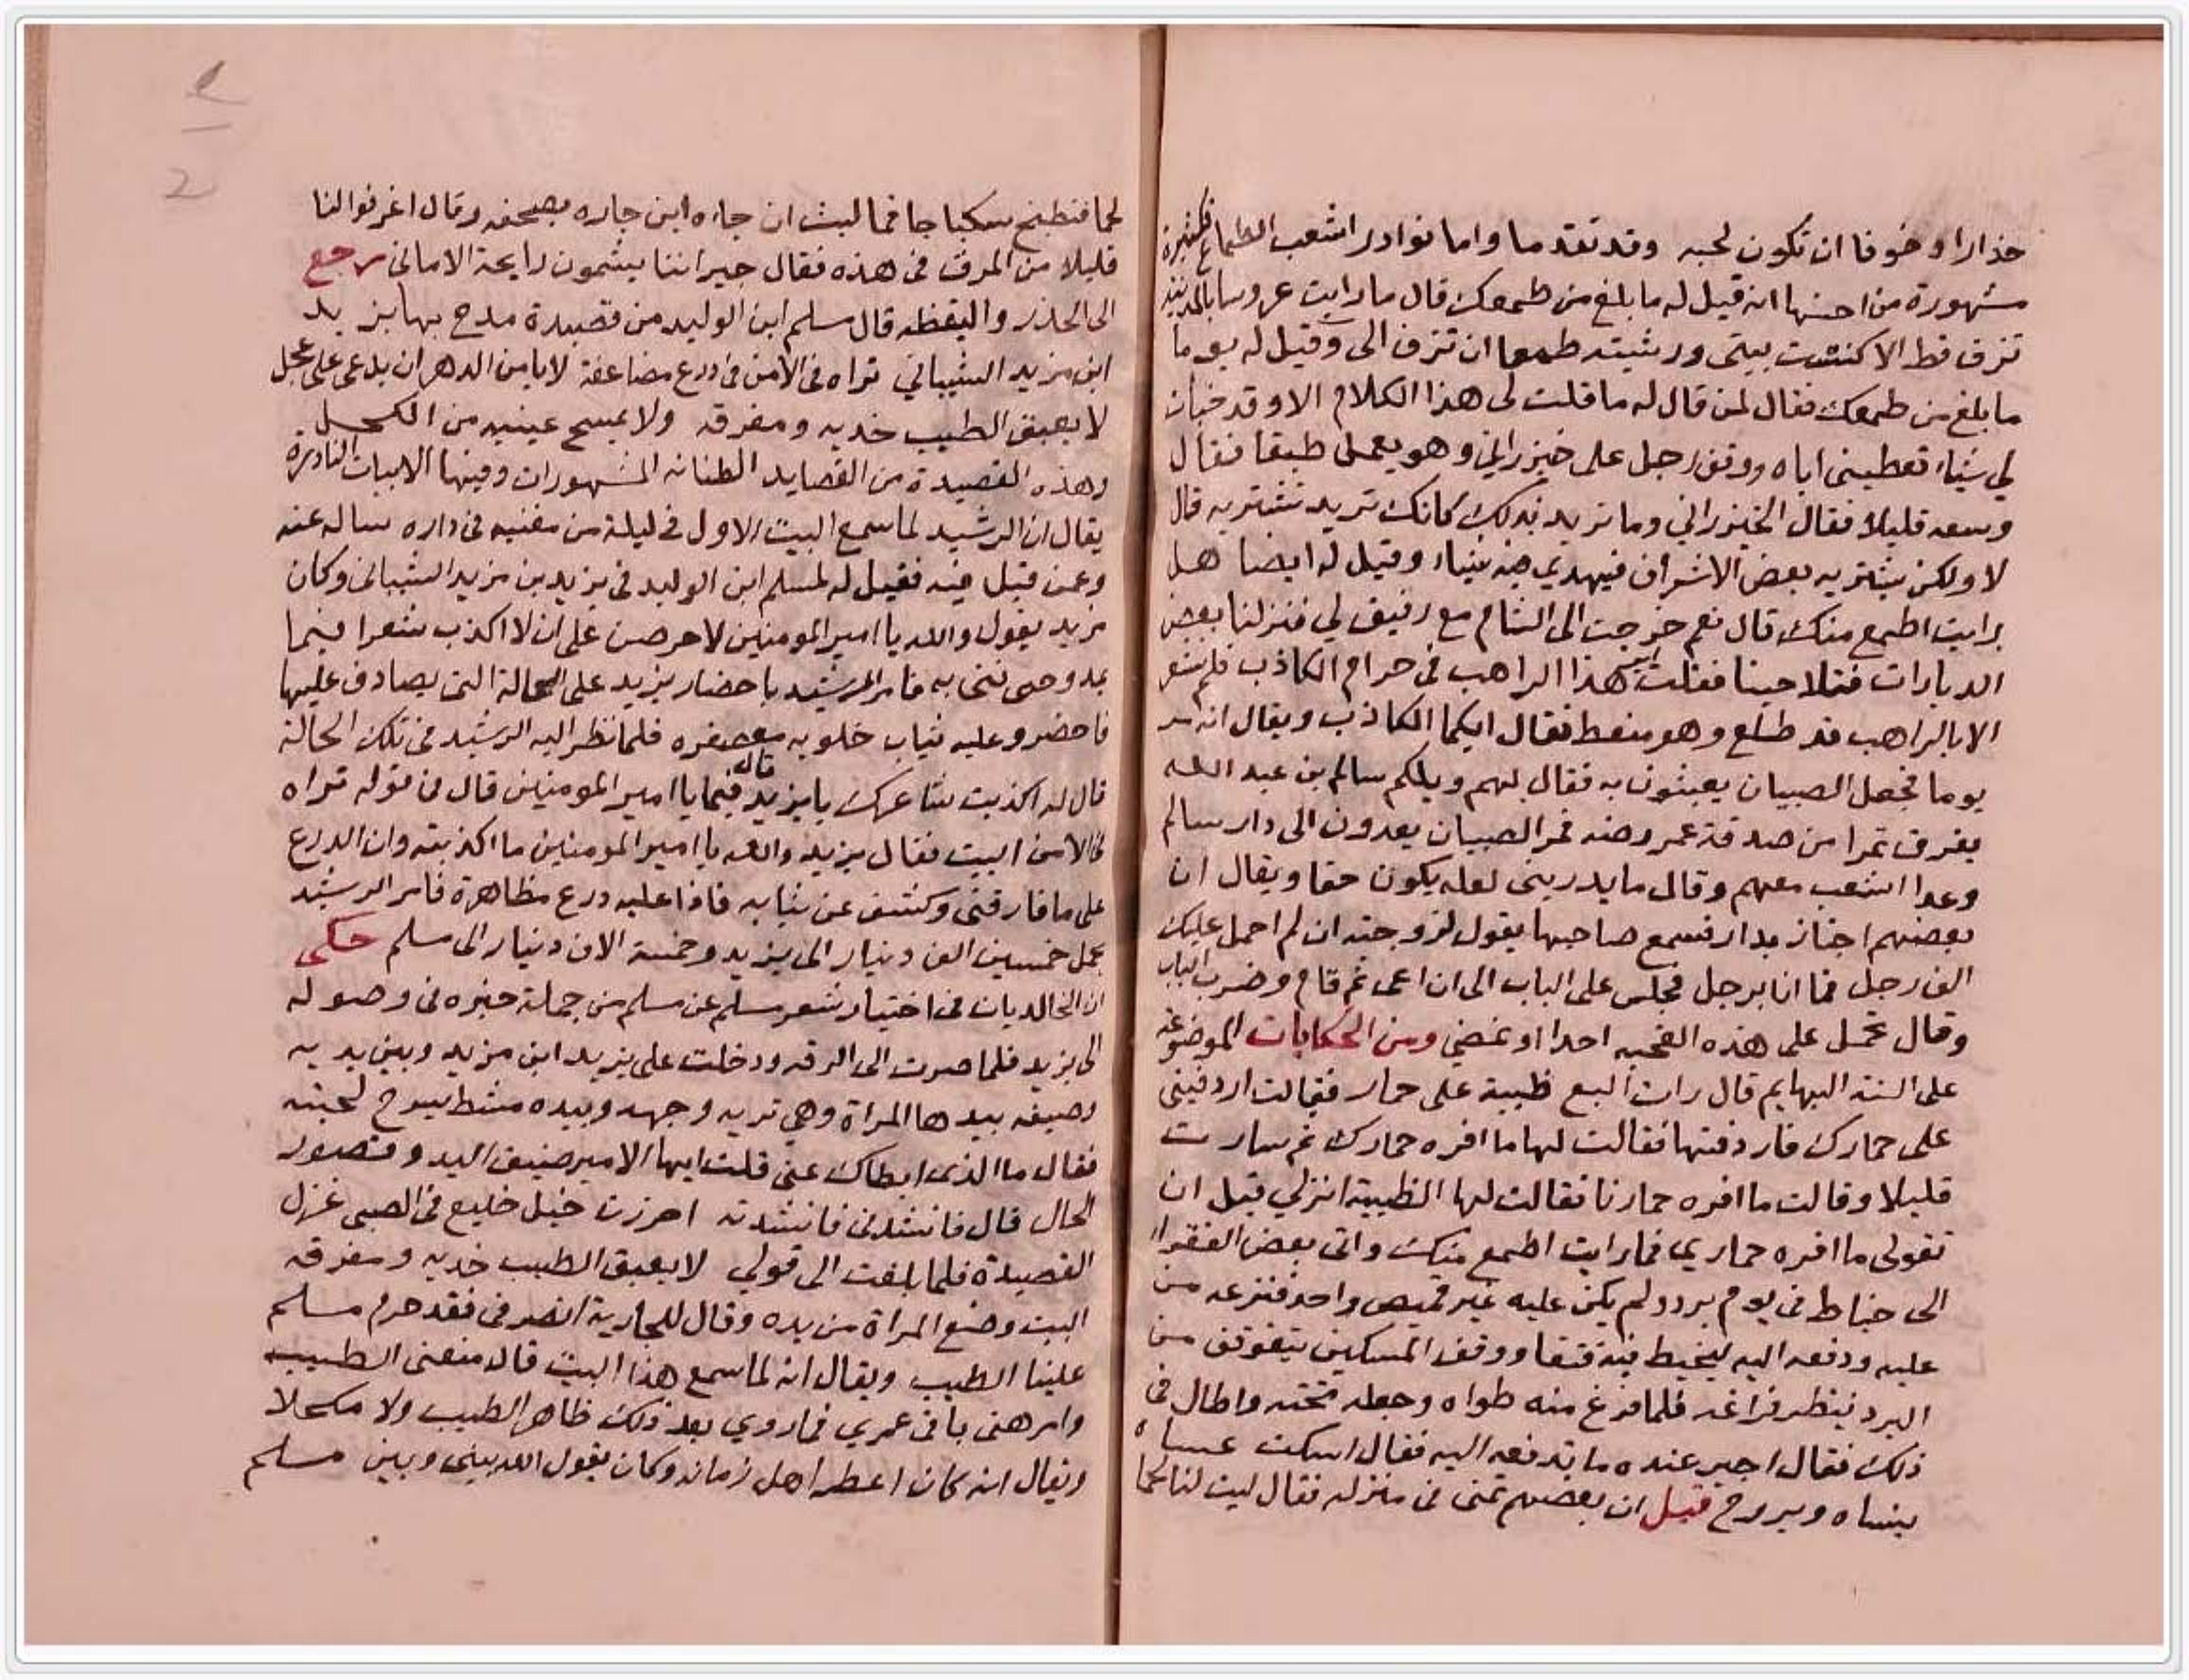 حذارا وخوفا ان تكون لحبه وقد تقدما واما نوادر اشعب الطماع فكثيرة
مشهورة من احسنها انه قيل له ما بلغ من طمعك قال ما رايت عروسا بالمدينة
تزف قط الا كنست بيتى ورشيته طمعا ان تزف الى وقيل له يوما
ما بلغ من طمعك فقال لمن قال له ما قلت لى هذا الكلام الا وقد خبات
لي شياء تعطينى اياه ووقف رجل على خيزراني وهو يعمل طبقا فقال
وسعه قليلا فقال الخيزراني وما تريد بذلك كانك تريد تشتريه قال
لا ولكن يشتريه بعض الاشراف فيهدي فيه شياء وقيل له ايضا هل
رايت اطمع منك قال نعم خرجت الى الشام مع رفيق لي فنزلنا بعض
الديارات فتلاحينا فقلت اير هذا الراهب فى حرام الكاذب فلم نشعر
الا بالراهب قد طلع وهو منعظ فقال ايكما الكاذب ويقال انه مر
يوما فجعل الصبيان يعبثون به فقال لهم ويلكم سالم بن عبد الله
يفرق تمرا من صدقة عمر فمر الصبيان يعدون الى دار سالم
وعدا اشعب معهم وقال ما يدرينى لعله يكون حقا ويقال ان
بعضهم اجتاز بدار فسمع صاحبها يقول لزوجته ان لم احمل عليك
الف رجل فما انا برجل فجلس على الباب الى ان اعى ثم قام وضرب الباب
وقال تحمل على هذه القحبه احدا او نمضي ومن الحكايات الموضوعه
على السنة البهايم قال رات الضبع ظبية على حمار فقالت اردفينى
على حمارك فاردفتها فقالت لها ما افره حمارك ثم سارت
قليلا وقالت ما افره حمارنا فقالت لها الظبية انزلي قبل ان
تقولى ما افره حماري فما رايت اطمع منك واتى بعض الفقراء
الى خياط فى يوم برد ولم يكن عليه غير قميص واحد فنزعه من
عليه ودفعه اليه ليخيط فيه فتقا ووقف المسكين يتقوقف من
البرد ينتظر فراغه فلما فرغ منه طواه وجعله تحته واطال فى
ذلك فقال اجير عنده ما تدفعه اليه فقال اسكت عساه
ينساه ويروح قيل ان بعضهم تمنى فى منزله فقال ليت لنا لحما
لحما فنطبخ سكباجا فما لبث ان جاءه ابن جاره بصحفه وقال اغرفوا لنا
قليلا من المرق فى هذه فقال جيراننا يشمون رايحة الامانى رجع
الى الحذر واليقظه قال مسلم ابن الوليد من قصيدة مدح بها يزيد
ابن مزيد الشيباني تراه فى الامن فى درع مضاعفة لا يامن الدهر ان يدعى على عجل
لا يعبق الطيب خديه ومفرقه ولا يمسح عينيه من الكحل
وهذه القصيدة من القصايد الطنانه المشهورات وفيها الابيات النادرة
يقال ان الرشيد لما سمع البيت الاول فى ليلة من مغنيه فى داره ساله عنه
وعمن قيل فيه فقيل له لمسلم ابن الوليد فى يزيد بن مزيد الشيبانى وكان
مزيد يقول والله يا امير المومنين لاحرصن على ان لا اكذب شعرا فيما
مدوحى به فامر الرشيد باحضار يزيد على الحالة التى يصادف عليها
فاحضر وعليه ثياب خلويه معصفره فلما نظر اليه الرشيد فى تلك الحالة
قال له اكذبت شاعرك يا يزيد قال فيما يا امير المومنين قال فى قوله تراه
فى الامن البيت فقال يزيد والله يا امير المومنين ما اكذبته وان الدرع
على ما فارقتنى وكشف عن ثيابه فاذا عليه درع مظاهرة فامر الرشيد
بحمل خمسين الف دينار الى يزيد وخمسة الاف دينار الى مسلم حكى
ان الخالديان فى اختيار شعر مسلم عن مسلم من جملة خبره فى وصوله
الى يزيد فلما صرت الى الرقه ودخلت على يزيد ابن مزيد وبين يديه
وصيفه بيدها المراة وهي تريه وجهه وبيده مشط يسرح لحيته
فقال ما الذى ابطاك عنى قلت ايها الامير ضيق اليد وقصور
الحال قال فانشدنى فانشدته اجررت حبل خليع فى الصبى غزل
القصيدة فلما بلغت الى قولي لا يعبق الطيب خديه ومفرقه
البيت وضع المراة من يده وقال للجارية انصرفى فقد حرم مسلم
علينا الطيب ويقال انه لما سمع هذا البيت قال منعنى الطيب
وامرهنى باقى عمري فما روي بعد ذلك ظاهر الطيب ولا مكحلا
ويقال انه كان اعطر اهل زمانه وكان يقول الله بينى وبين مسلم